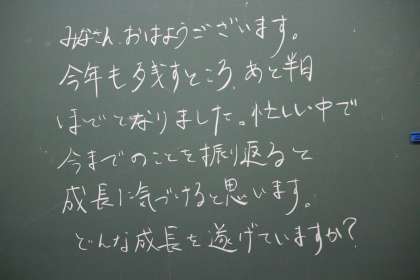 みなさん、おはようございます。
今年も残すところ、あと半月
ほどとなりました。忙しい中で
今までのことを振り返ると
成長に気づけると思います。
どんな成長を遂げていますか?